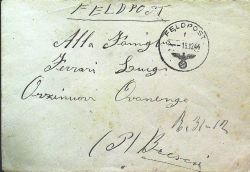 FELDPOST
FELDPOST
15.12.44
Alla Famiglia
Ferrari Luigi
Orzinuovi Ovanengo
B. 31-12
(P/ Brescia